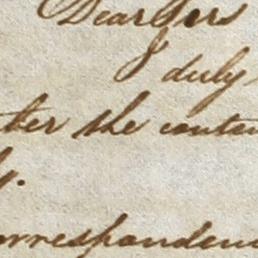 Dear Sirs
I duly
ther the conten
y.
orrespondenc